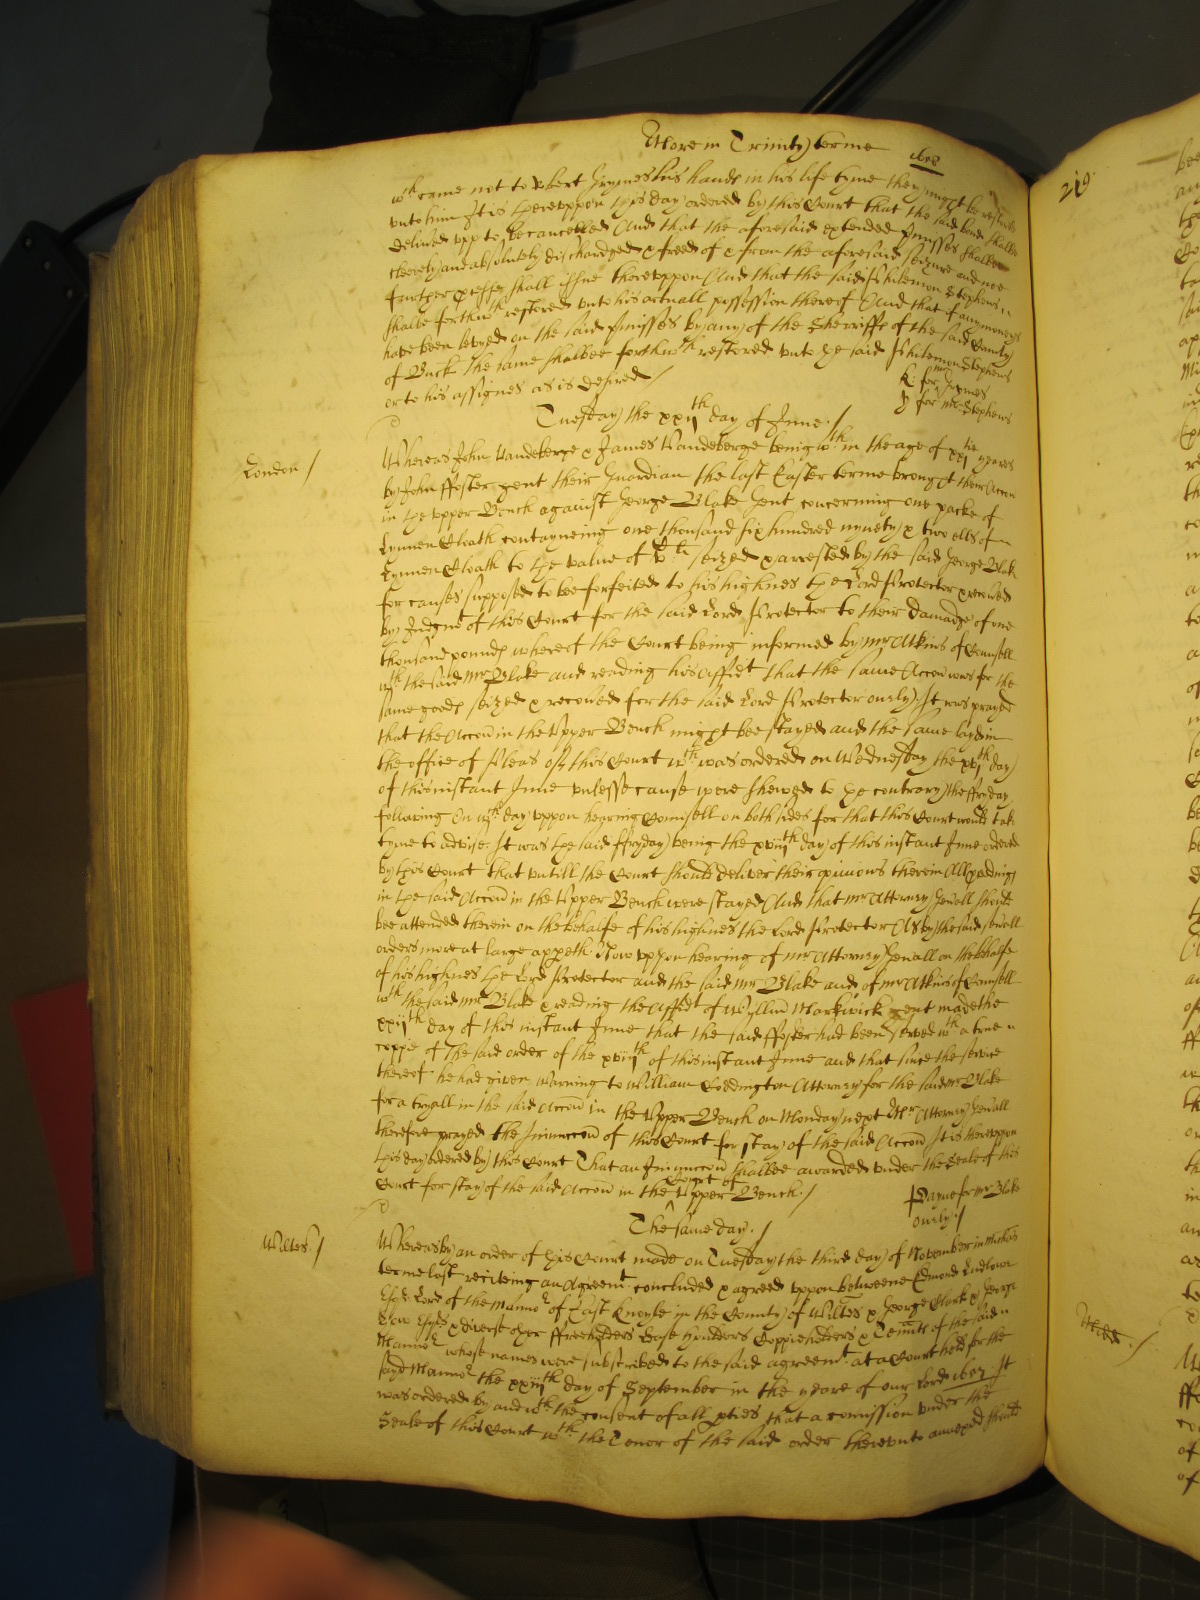 More in Trinity terme 1658
wch came not to Robert Grymes his hands in his life tyme they might be restored
unto him It is thereuppon this day ordered by this Court that the said bond shalbe
delived upp to be cancelled And that the aforesaid extended pmisses shalbee
cleerely and absolutely dischardged & freed of & from the aforesaid seizure and noe
further pcesse shall issue thereuppon And that the said Philemon Stephens
shalbe forthwth restored unto his actuall possession thereof And that if any moneys
have been levyed on the said pmisses by any of the Sherriffs of the said County
of Buck the same shalbee forthwth restored unto the said Philemon Stephens
or to his assignes as is desired /
K: for mr Grymes
J for mr Stephens
Tuesday the xxijth day of June. /
London /
Whereas John Vandeberge & James Vandeberge being wth in the age of xxjtie yeares
by John ffoster gent their Guardian the last Easter terme brought their Accon
in the upper Bench against George Blake Gent concerning one packe of
Lynnen Cloath contayneing one thousand six hundred nynety & two ells of
Lynnen Cloath to the value of seized & arrested by the said George Blake
for causes supposed to bee forfeited to his highnes the Lord Protector & recoved
by Judgmt of this Court for the said Lord Protector to their damadge of one
thousand pounds whereof the Court being informed by mr Atkins of Counsell
wth the said mr Blake and reading his Affidt that the same Accon was for the
same goods seized & recoved for the said Lord Protector It was prayed
that the Accon in the Upper Bench might bee stayed and the same layd in
the office of Pleas of this Court wch was ordered on Wednesday the xvjth day
of this instant June unlesse cause were shewed to the contrary the ffryday
following On wch day uppon hearing Counsell on both sides for that this Court would take
tyme to advise It was the said ffryday being the xviijth day of this instant June ordered
by this Court that untill the Court should deliver their opinions therein All pceedings
in the said Accon in the Upper Bench were stayed And that mr Attorney Genall should
bee attended therein on the behalfe of his highnes the Lord Protector As by the said severall
orders more at large appeth Now uppon hearing of mr Attorney Genall on the behalfe
of his highnes the Lord Protector and the said mr Blake and of mr Atkins of Counsell
wth the said mr Blake & reading the Affidt of Willm Markwick gent made the
xxijth day of this instant June that the said ffoster had been served wth a true
coppie of the said order of the xviijth of this instant June and that since the service
thereof he had given warning to William Coddington Attorney for the said mr Blake
for a tryall in the said Accon in the Upper Bench on Monday next Mr Attorney Genall
therefore prayed the Iniunccon of this Court for stay of the said Accon It is thereuppon
this day ordered by this Court That an Iniunccon shalbee awarded under the Seale of this
Court for stay of the said Accon in the Court of Upper Bench. /
Payne for mr Blake
The same day. /
Wiltes. /
Whereas by an order of this Court made on Tuesday the third day of November in Michas
terme last reciteing an Agreemt concluded & agreed uppon betweene Edmond Ludlowe
Esqr Lord of the Mannor of East Knoyle in the County of Wiltes & George Clark & George
Esqrs & diverse other ffreeholders Coppieholders & Tennts of the said
Mannor whose names were subscribed to the said agreemt at a Court held for the
said Mannor the xxiijth day of September in the yeare of our Lord 1657 It
was ordered by and wth the consent of all pties that a comission under the
Seale of this Court wth the Tenor of the said order thereunto annexed should
219.